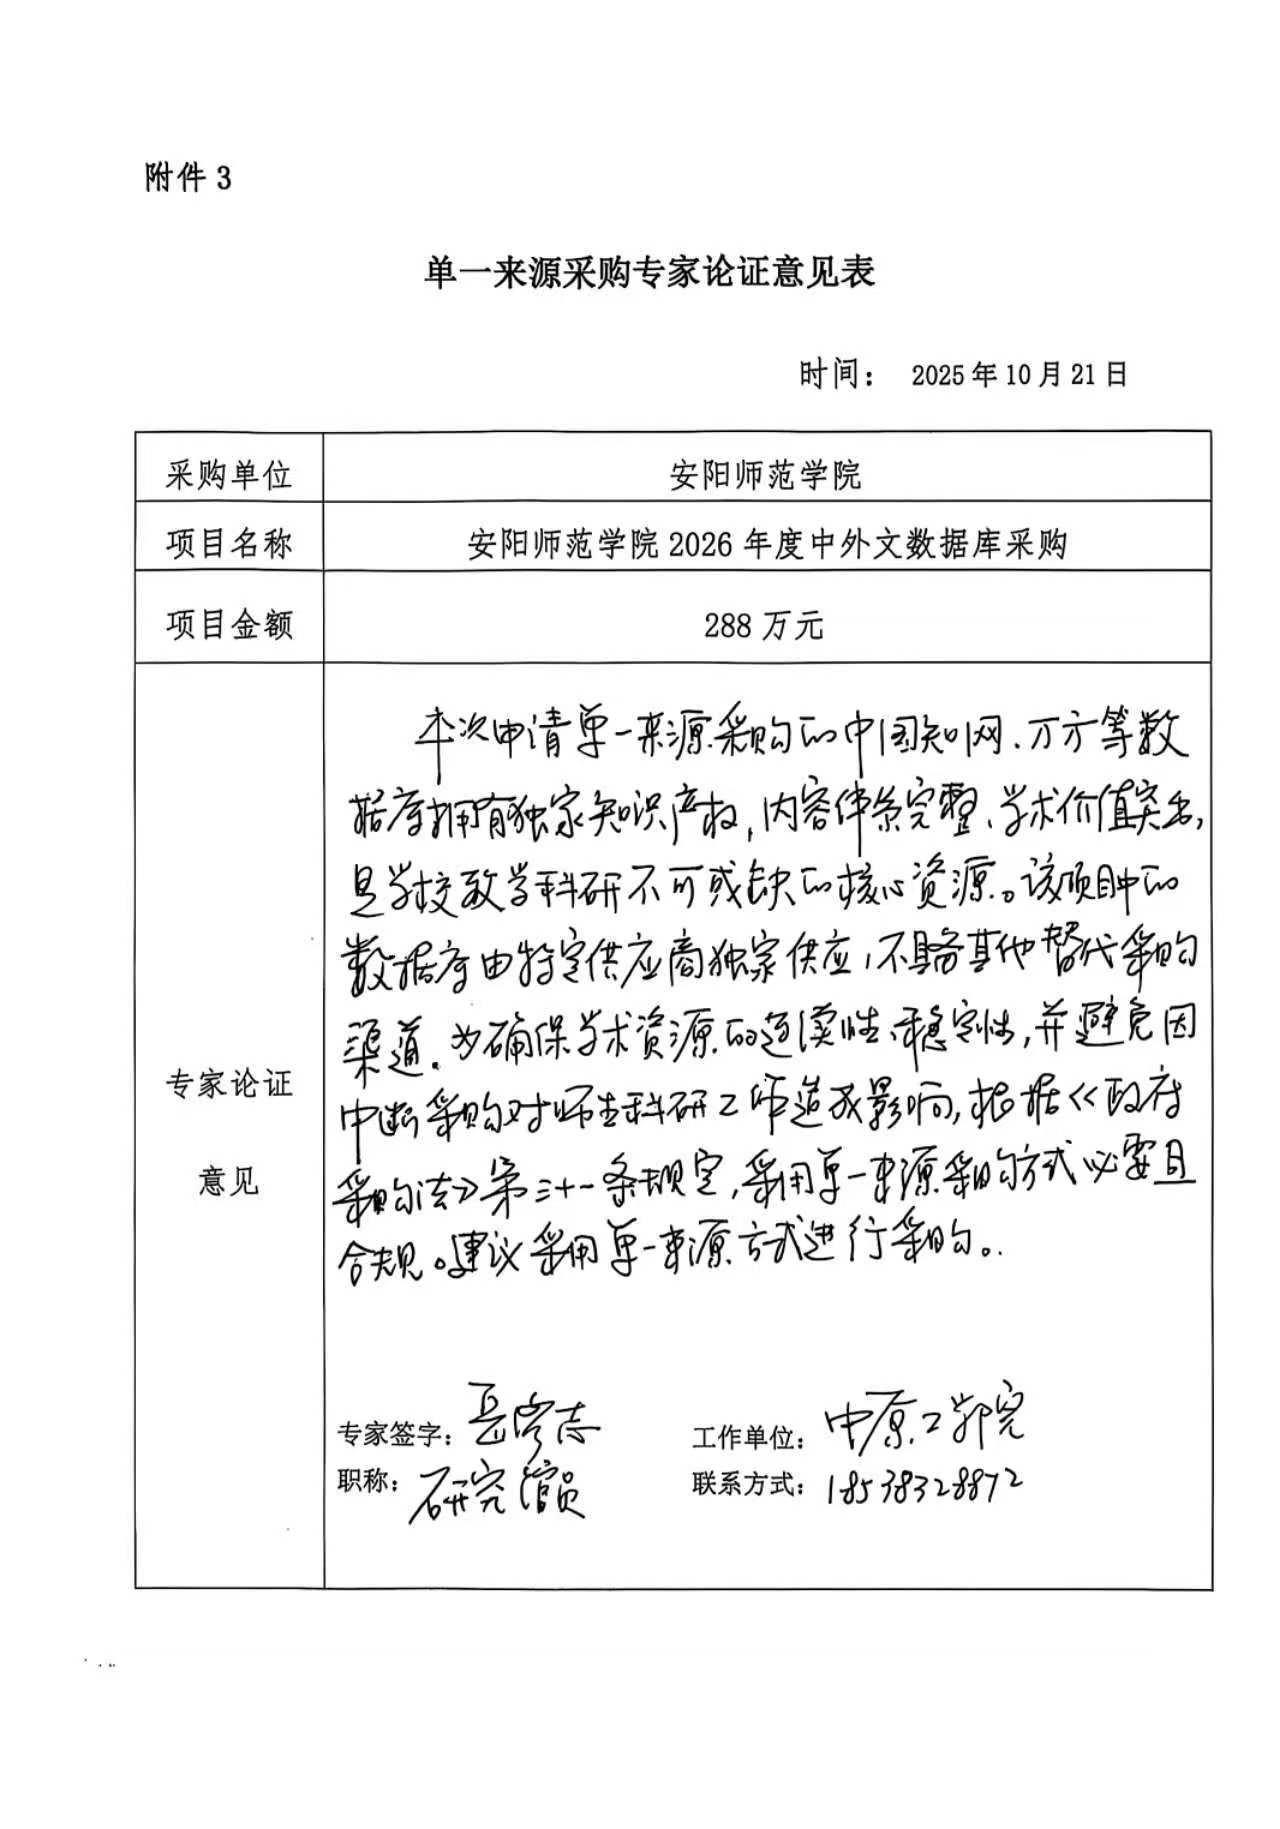 附件 3
单一来源采购专家论证意见表
时间： 2025 年 10 月 21 日
采购单位 安阳师范学院
项目名称 安阳师范学院 2026 年度中外文数据库采购
项目金额 288 万元
专家论证
意见
本次申请单一来源采购的中国知网、万方等数
据库拥有独家知识产权，内容体系完整、学术价值突出，
是学校教学科研不可或缺的核心资源。该项目中的
数据库由特定供应商独家供应，不具备其他替代采购
渠道。为确保学术资源的连续性、稳定性，并避免因
中断采购对师生科研工作造成影响，根据《政府
采购法》第三十一条规定，采用单一来源采购方式必要且
合规。建议采用单一来源方式进行采购。
专家签字： 工作单位： 中原工学院
职称： 研究馆员 联系方式： 18538328872